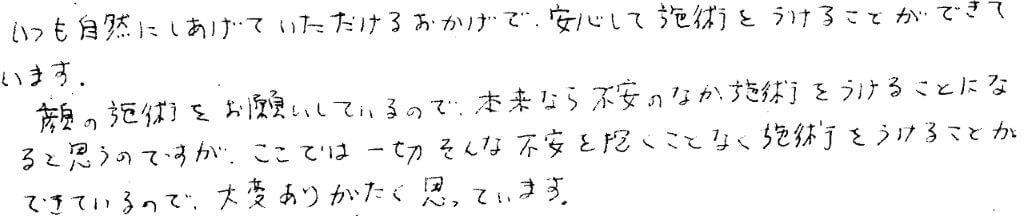 いつも自然にしあげていただけるおかげで、安心して施術をうけることができて
います。
顔の施術をお願いしているので、本来なら不安のなか、施術をうけることにな
ると思うのですが、ここでは一切そんな不安を抱くことなく施術をうけることが
できているので、大変ありがたく思っています。